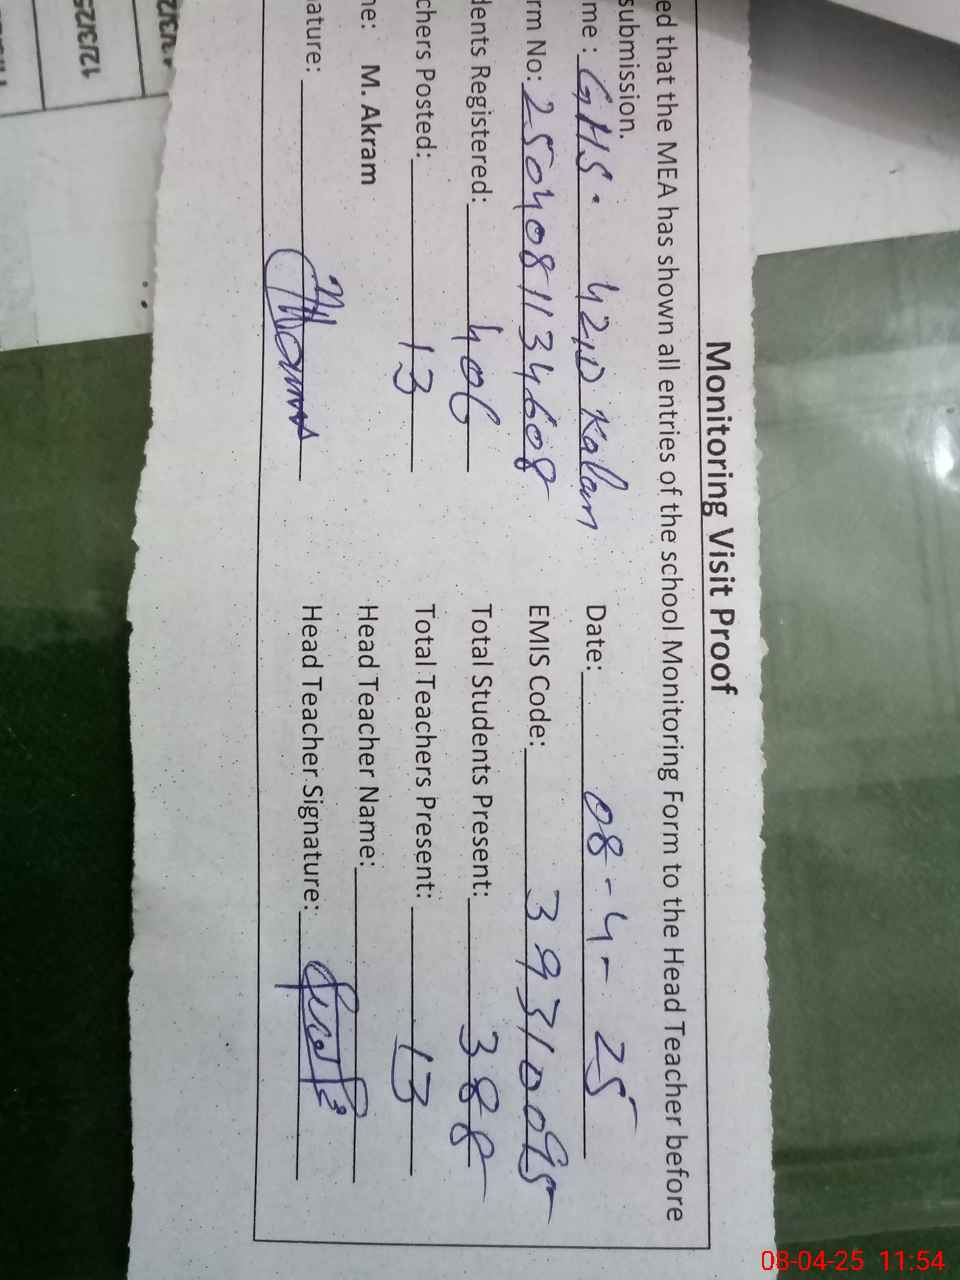 Monitoring Visit Proof
ed that the MEA has shown all entries of the school Monitoring Form to the Head Teacher before
submission.
me : GHS. 42/D Kalan Date: 08-4-25
rm No: 2504081134608 EMIS Code: 39310095
dents Registered: 406 Total Students Present: 388
chers Posted: 13 Total Teachers Present: 13
ne: M. Akram Head Teacher Name:
ature: Head Teacher Signature:
12/3/25
08-04-25 11:54